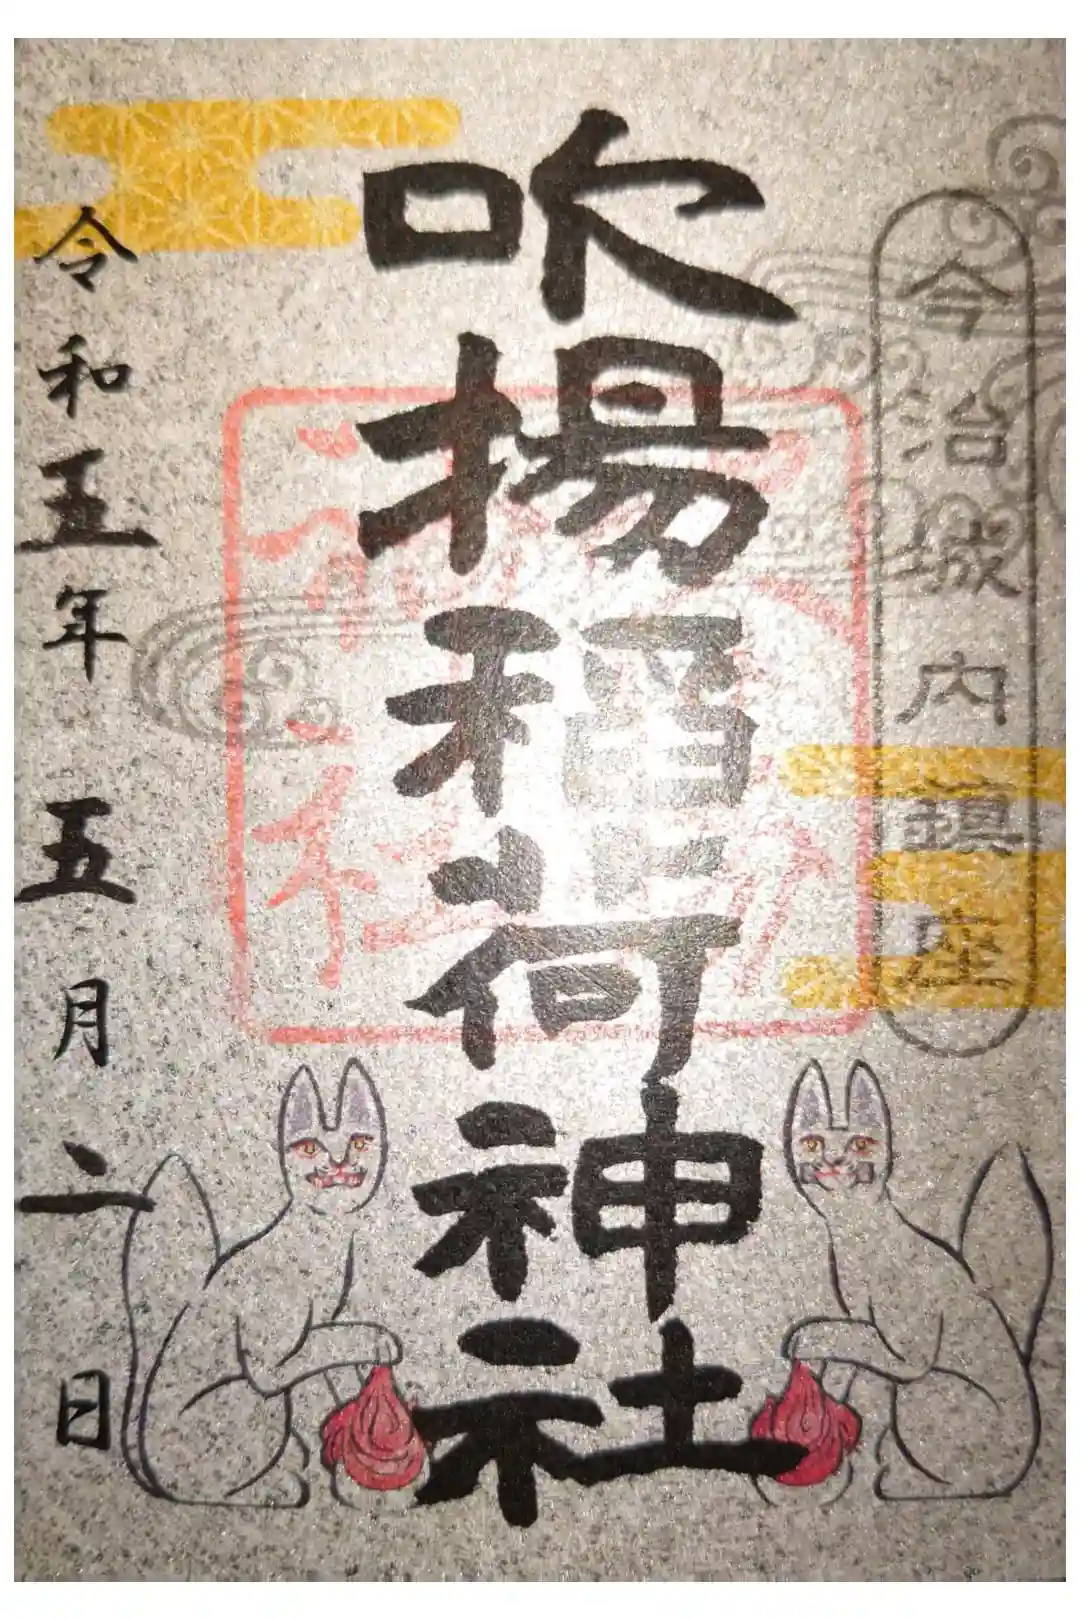 今治城内鎮座
吹揚稲荷神社
令和五年五月二日